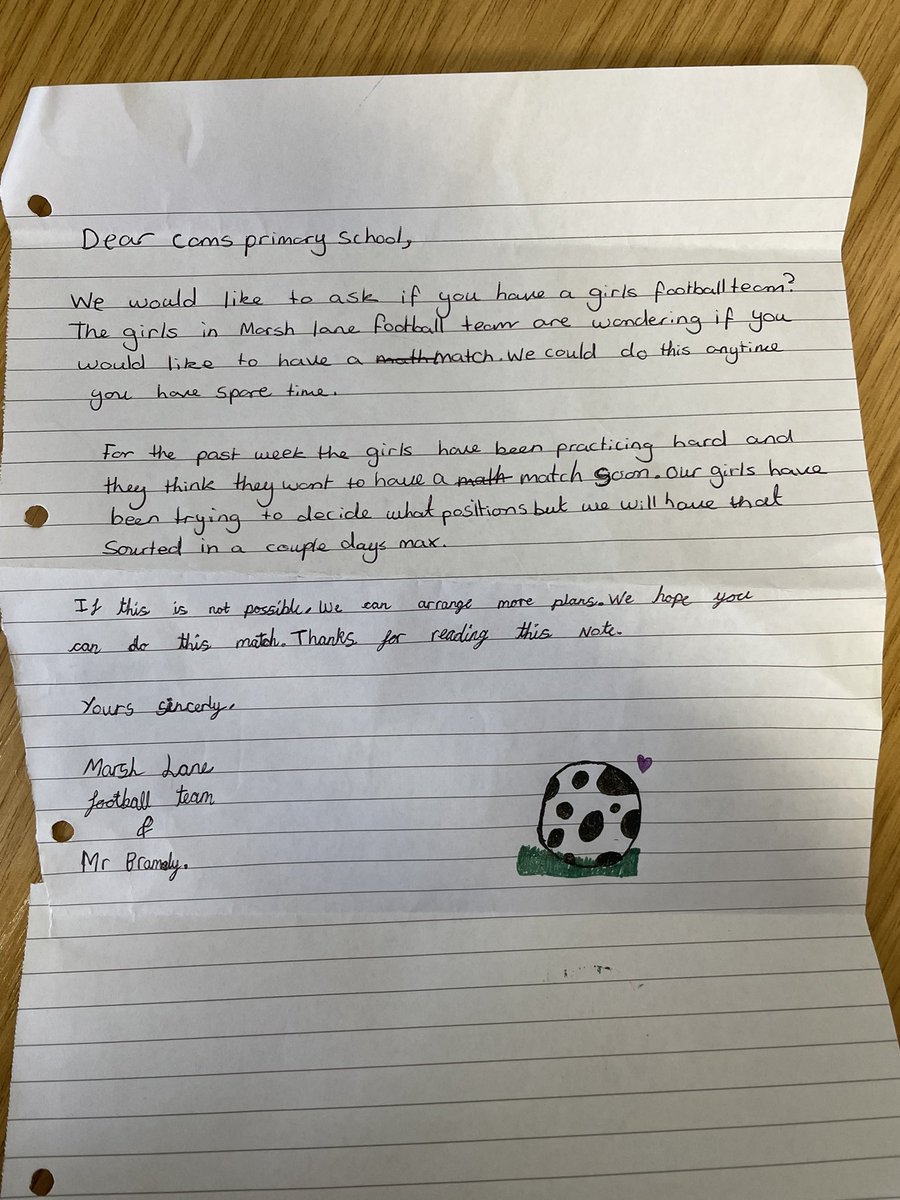 Dear Coms primary School,
We would like to ask if you have a girls football team?
The girls in Marsh lane football team are wondering if you
would like to have a math match. We could do this anytime
you have spare time.
For the past week the girls have been practicing hard and
they think they want to have a math match Soon. Our girls have
been trying to decide what positions but we will have that
Sourted in a couple days max.
If this is not possible, We can arrange more plans. We hope you
can do this match. Thanks for reading this Note.
Yours sincerly,
Marsh Lane
football team
&
Mr Bramdy.